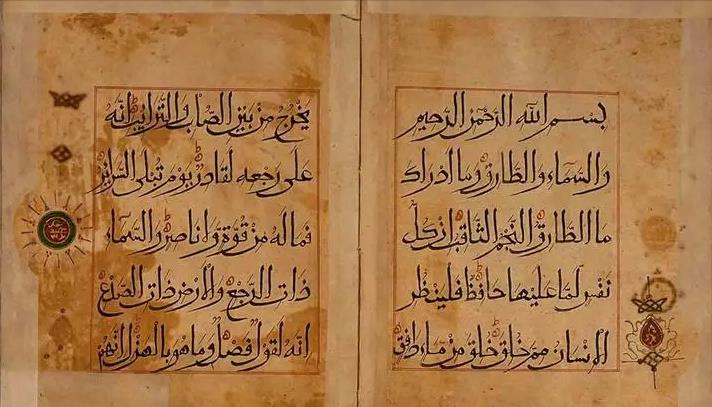 بسم الله الرحمن الرحيم
والسماء والطارق وما ادراك
ما الطارق النجم الثاقب ان كل
نفس لما عليها حافظ فلينظر
الانسان مم خلق خلق من ماء دافق
يخرج من بين الصلب والترايب انه
على رجعه لقادر يوم تبلى السراير
فما له من قوة ولا ناصر والسماء
ذات الرجع والارض ذات الصدع
انه لقول فصل وما هو بالهزل انهم